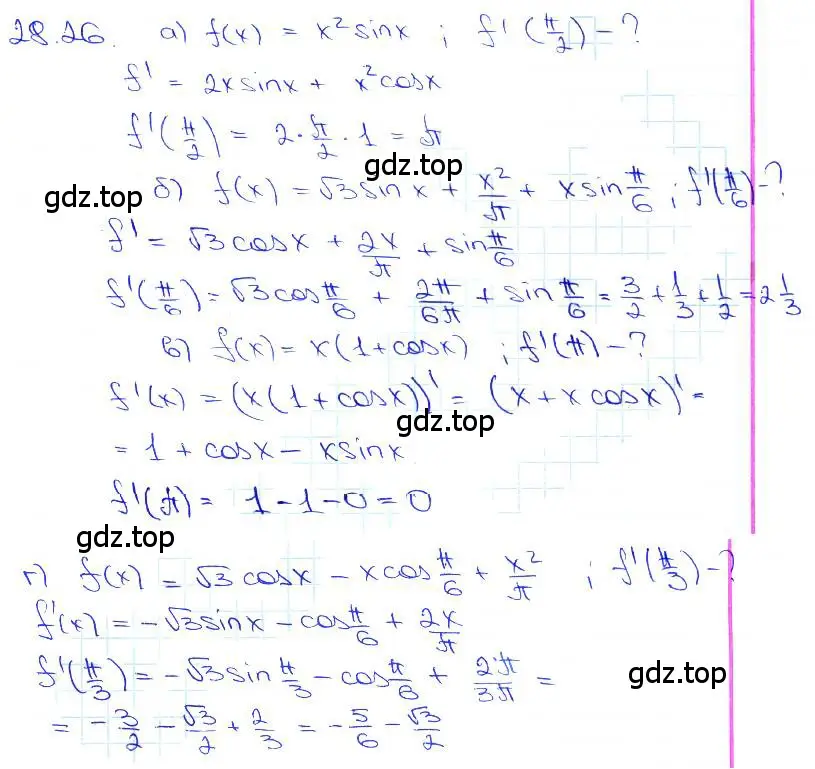 28.26. а) f(x) = x² sinx ; f'(π/2) - ?
f' = 2x sinx + x² cosx
f'(π/2) = 2·π/2·1 = π
gdz.top
gdz.top
б) f(x) = √3 sinx + x²/π + x sin π/6 ; f'(π/6) - ?
f' = √3 cosx + 2x/π + sin π/6
f'(π/6) = √3 cos π/6 + 2π/6π + sin π/6 = 3/2 + 1/3 + 1/2 = 2 1/3
в) f(x) = x(1+cosx) ; f'(π) - ?
f'(x) = (x(1+cosx))' = (x + x cosx)' =
gdz.top
= 1 + cosx - x sinx
f'(π) = 1 - 1 - 0 = 0
gdz.top
г) f(x) = √3 cosx - x cos π/6 + x²/π ; f'(π/3) - ?
f'(x) = -√3 sinx - cos π/6 + 2x/π
f'(π/3) = -√3 sin π/3 - cos π/6 + 2·π/3π =
gdz.top
= -3/2 - √3/2 + 2/3 = -5/6 - √3/2